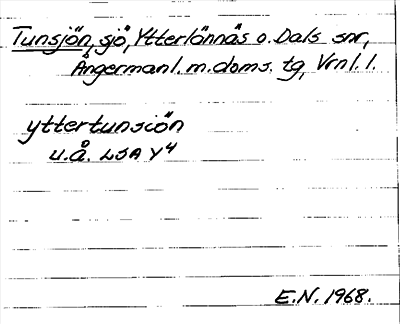 Tunsjön, sjö, Ytterlännäs o. Dals snr,
Ångermanl. m. doms. tg, Vrnl. l.
yttertunsiön
u.å. LSA Y4
E.N. 1968.